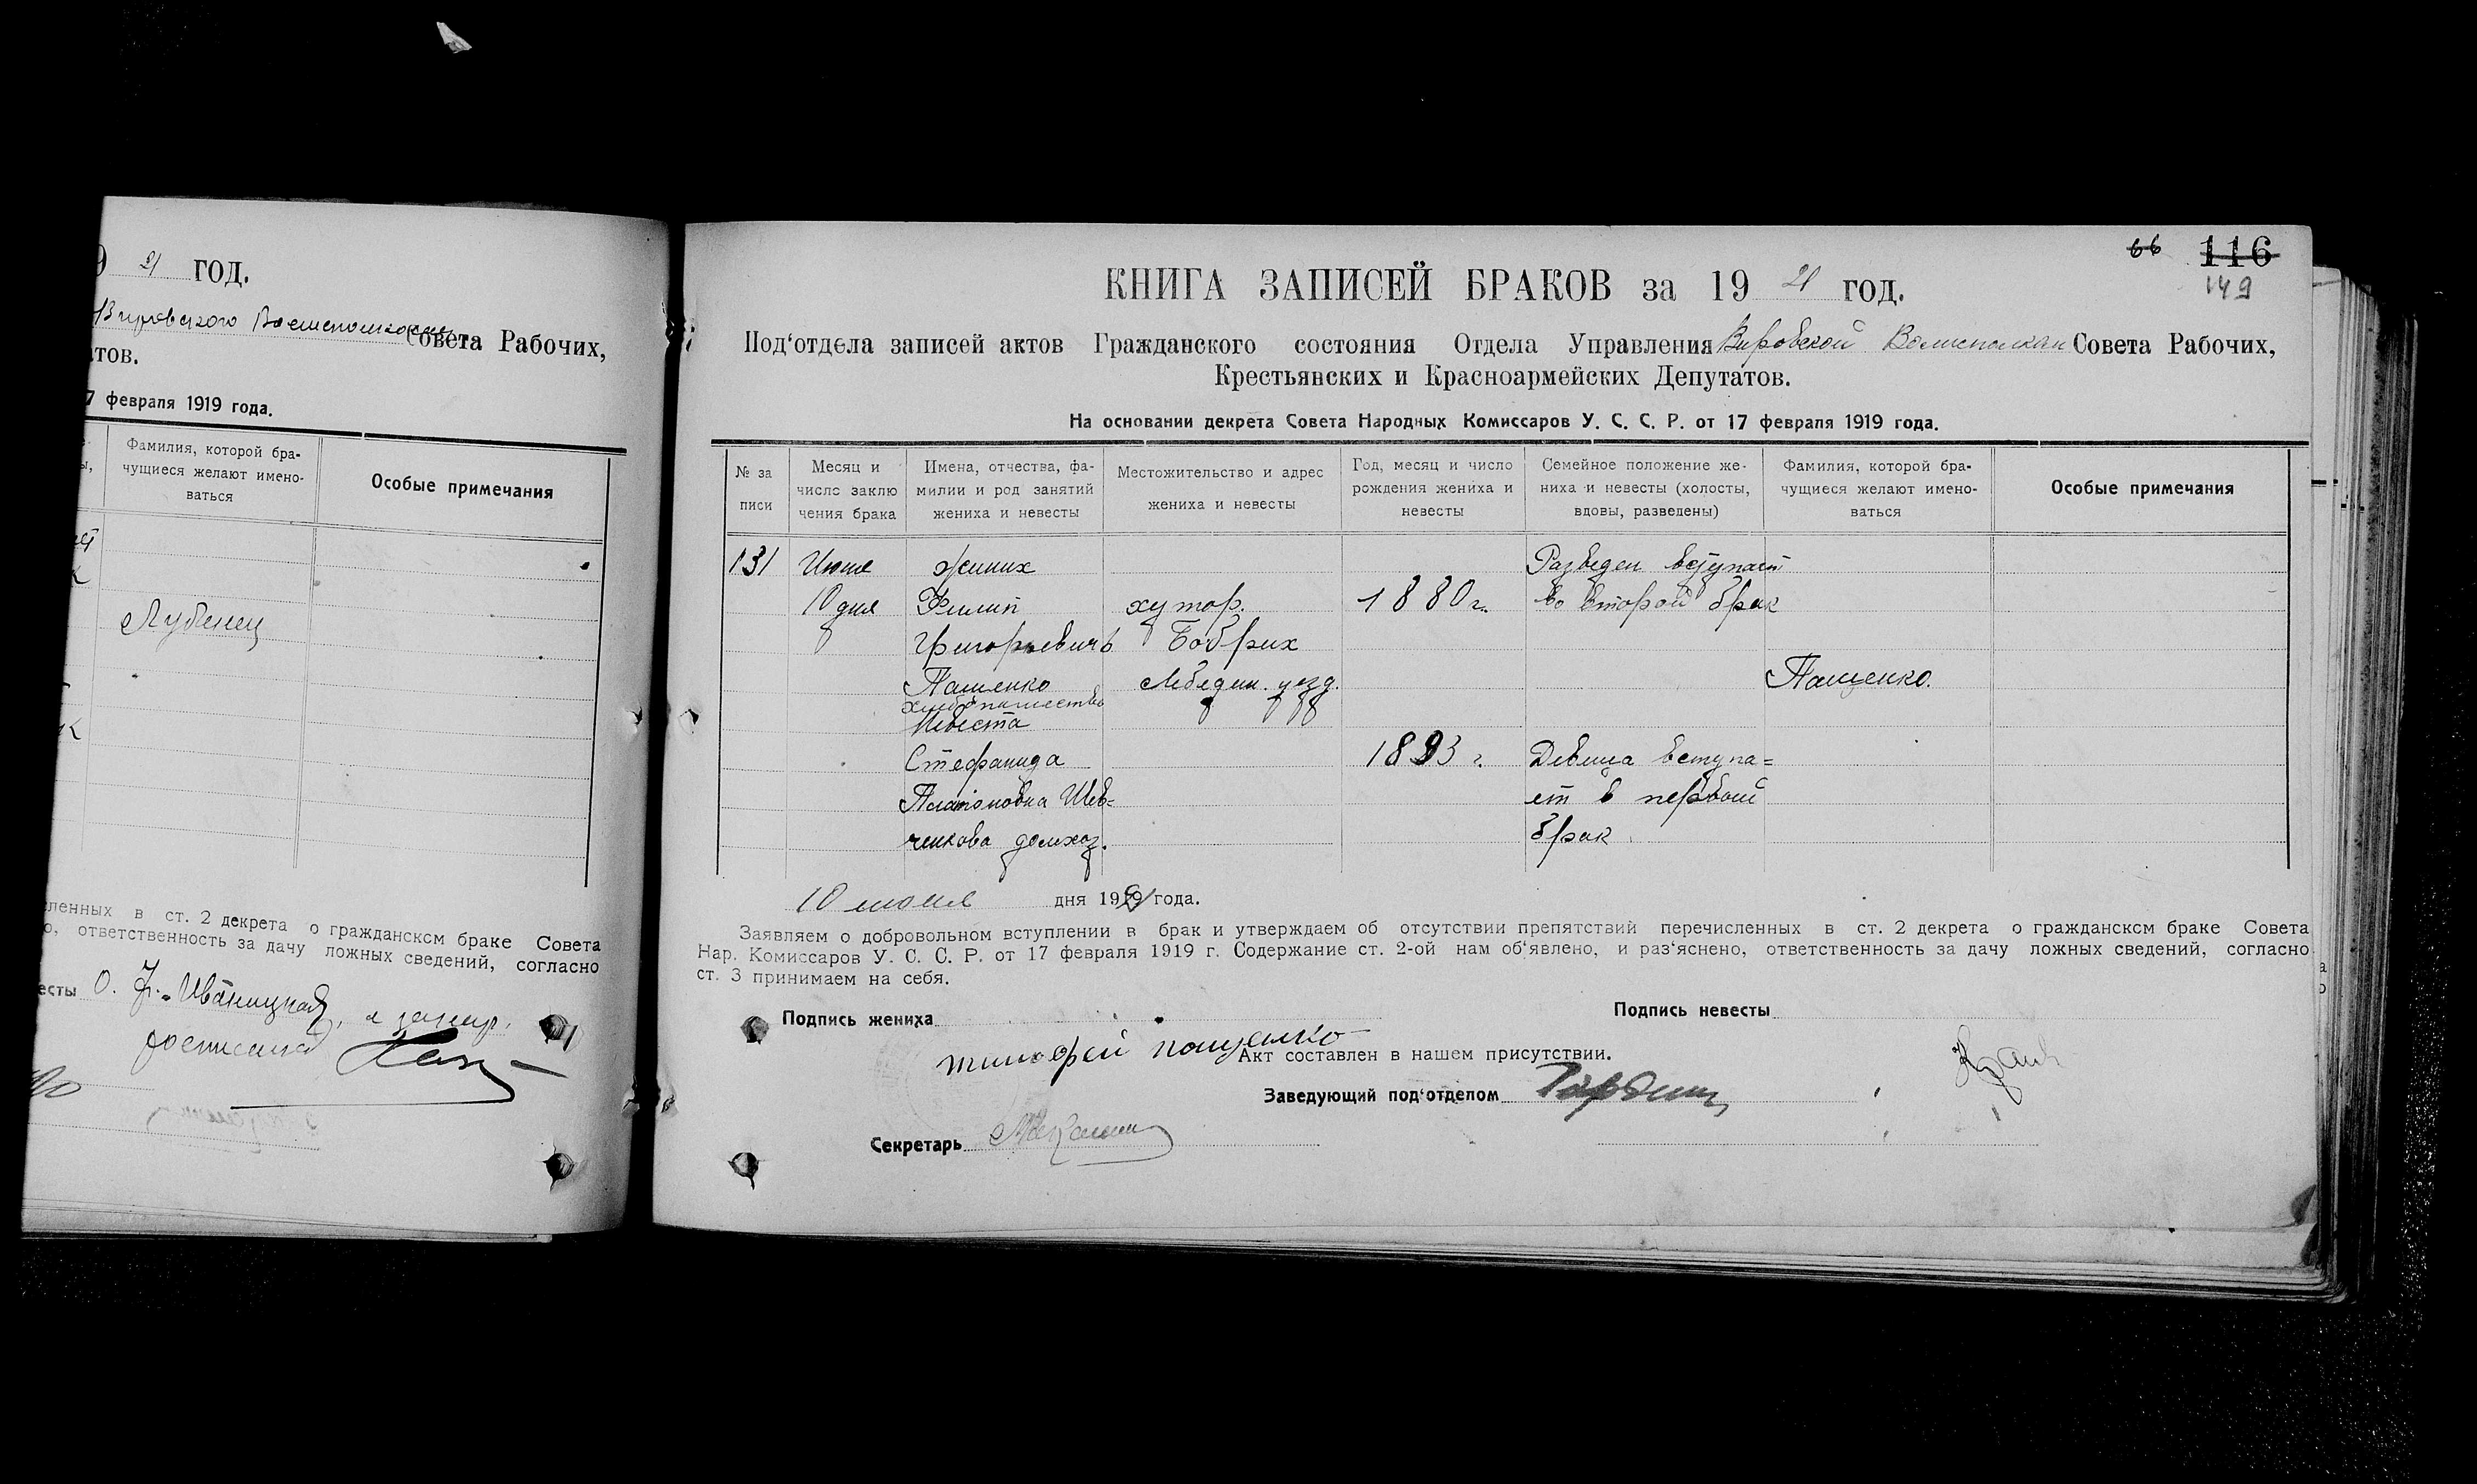 21 год.
Совета Рабочих,
тов.
7 февраля 1919 года.
Фамилия, которой бра-
чущиеся желают имено-
ваться
Особые примечания
Лубенец
ленных в ст. 2 декрета о гражданском браке Совета
о, ответственность за дачу ложных сведений, согласно
есты О. Иваницкая,
66 116
149
КНИГА ЗАПИСЕЙ БРАКОВ за 1921 год.
Под‘отдела записей актов Гражданского состояния Отдела Управления Вировской Волисполком Совета Рабочих,
Крестьянских и Красноармейских Депутатов.
На основании декрета Совета Народных Комиссаров У. С. С. Р. от 17 февраля 1919 года.
№ за
писи
Месяц и
число заклю
чения брака
Имена, отчества, фа-
милии и род занятий
жениха и невесты
Местожительство и адрес
жениха и невесты
Год, месяц и число
рождения жениха и
невесты
Семейное положение же-
ниха и невесты (холосты,
вдовы, разведены)
Фамилия, которой бра-
чущиеся желают имено-
ваться
Особые примечания
131
Июня
10 дня
жених
Филип
Григорьевичь
Пащенко
хлебопашество
Невеста
Стефанида
Платоновна Шев-
ченкова домхоз.
хутор.
Бобрих
Лебедин. уезд.
1880 г.
1893 г.
Разведен вступает
во второй брак
Девица вступа=
ет в первый
брак
Пащенко.
10 июня дня 1921 года.
Заявляем о добровольном вступлении в брак и утверждаем об отсутствии препятствий перечисленных в ст. 2 декрета о гражданском браке Совета
Нар. Комиссаров У. С. С. Р. от 17 февраля 1919 г. Содержание ст. 2-ой нам об‘явлено, и раз‘яснено, ответственность за дачу ложных сведений, согласно
ст. 3 принимаем на себя.
Подпись жениха
Подпись невесты
тимофей пащенко
Акт составлен в нашем присутствии.
Заведующий под‘отделом
Секретарь